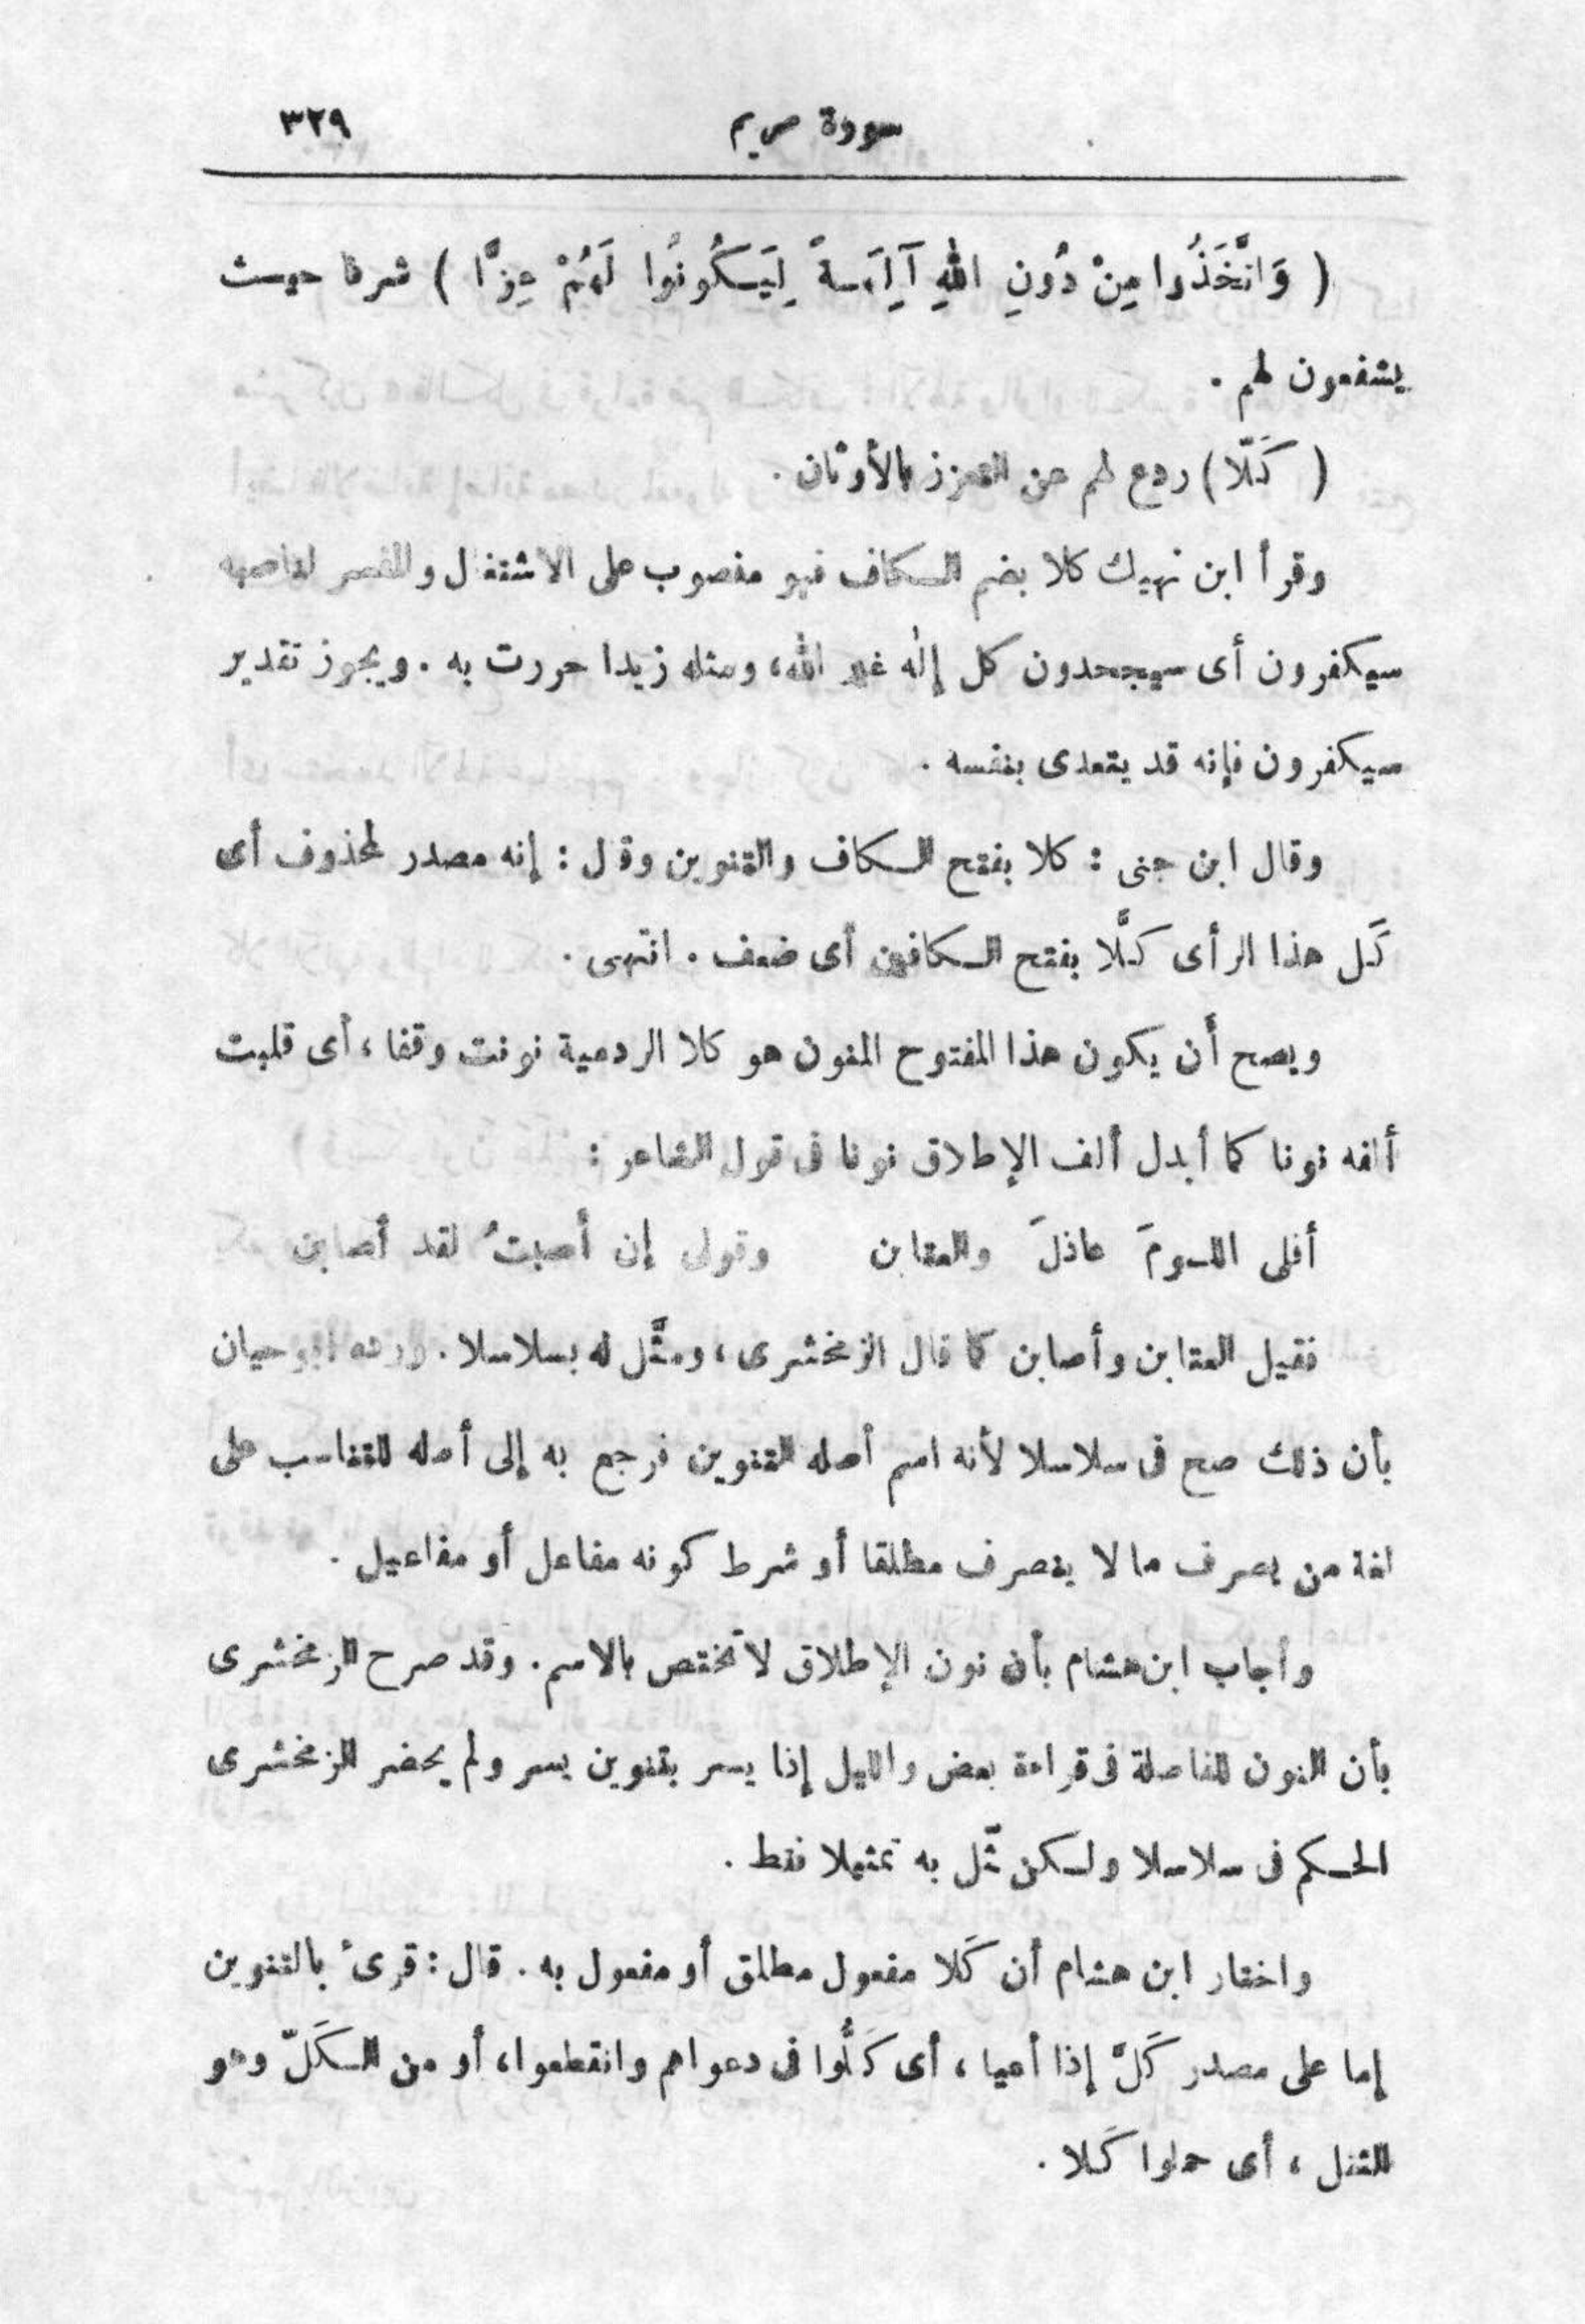 سورة مريم ٣٢٩
( وَاتَّخَذُوا مِنْ دُونِ اللهِ آلِهَةً لِيَكُونُوا لَهُمْ عِزًّا ) شرفا حيث
يشفعون لهم .
( كَلَّا ) ردع لهم عن التعزز بالأوثان .
وقرأ ابن نهيك كلا بضم الكاف فهو منصوب على الاشتغال والمفسر لناصبه
سيكفرون أى سيجحدون كل إلٰه غير الله، ومثله زيدا مررت به . ويجوز تقدير
سيكفرون فإنه قد يتعدى بنفسه .
وقال ابن جنى : كلا بفتح الكاف والتنوين وقال : إنه مصدر لمحذوف أى
كَل هذا الرأى كَلَّا بفتح الكافين أى ضعف . انتهى .
ويصح أَن يكون هذا المفتوح المنون هو كلا الردعية نونت وقفا ، أى قلبت
ألفه نونا كما أبدل ألف الإطلاق نونا فى قول الشاعر :
أقلى اللومَ عاذلَ والعتابن وقولى إن أصبتُ لقد أصابن
فقيل العتابن وأصابن كما قال الزمخشرى ، ومثَّل له بسلاسلا . ورده أبو حيان
بأن ذلك صح فى سلاسلا لأنه اسم أصله التنوين فرجع به إلى أصله للتناسب على
لغة من يصرف ما لا ينصرف مطلقا أو شرط كونه مفاعل أو مفاعيل .
وأجاب ابن هشام بأن نون الإطلاق لا تختص بالاسم . وقد صرح الزمخشرى
بأن النون للفاصلة فى قراءة بعض والليل إذا يسر بتنوين يسر ولم يحضر الزمخشرى
الحكم فى سلاسلا ولكن مثّل به تمثيلا فقط .
واختار ابن هشام أن كَلا مفعول مطلق أو مفعول به . قال : قرئ بالتنوين
إما على مصدر كَلَّ إذا أعيا ، أى كَلُّوا فى دعواهم وانقطعوا ، أو من الكَلّ وهو
الثقل ، أى حملوا كَلا .